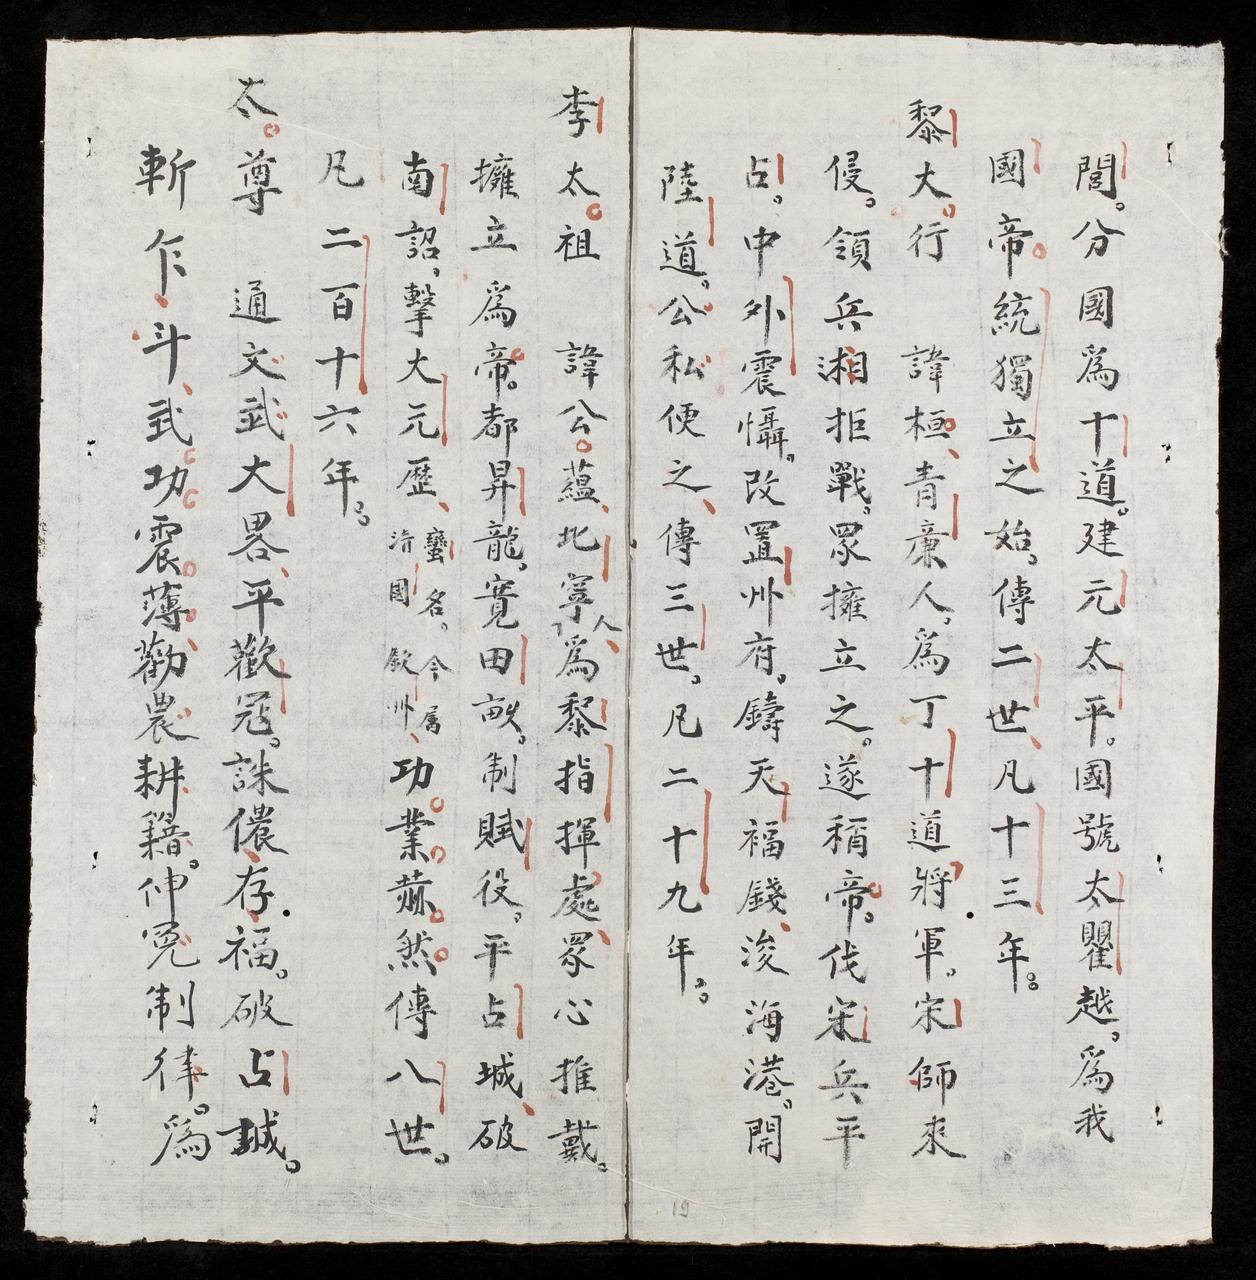 閣。分國爲十道。建元太平。國號太瞿越。爲我
國帝統獨立之始。傳二世、凡十三年。
黎大行　諱桓、青廉人。爲丁十道將軍。宋師來
侵。領兵湘拒戰。眾擁立之。遂稍帝。伐宋兵平
占。中外震懾。改置州府。鑄天福錢、浚海港。開
陸道。公私便之、傳三世。凡二十九年。
李太祖　諱公蘊、北寧人、爲黎指揮處、眾心推戴。
擁立爲帝。都昇龍。寬田畝。制賦役。平占城、破
南詔、擊大元歷、蠻名。今属清國欽州、功業赫然傳八世。
凡二百十六年。
太尊　通文武大畧、平歡冦。誅儂存福。破占城。
斬乍、斗、武功震薄、勸農耕籍。伸冤制律。爲
19